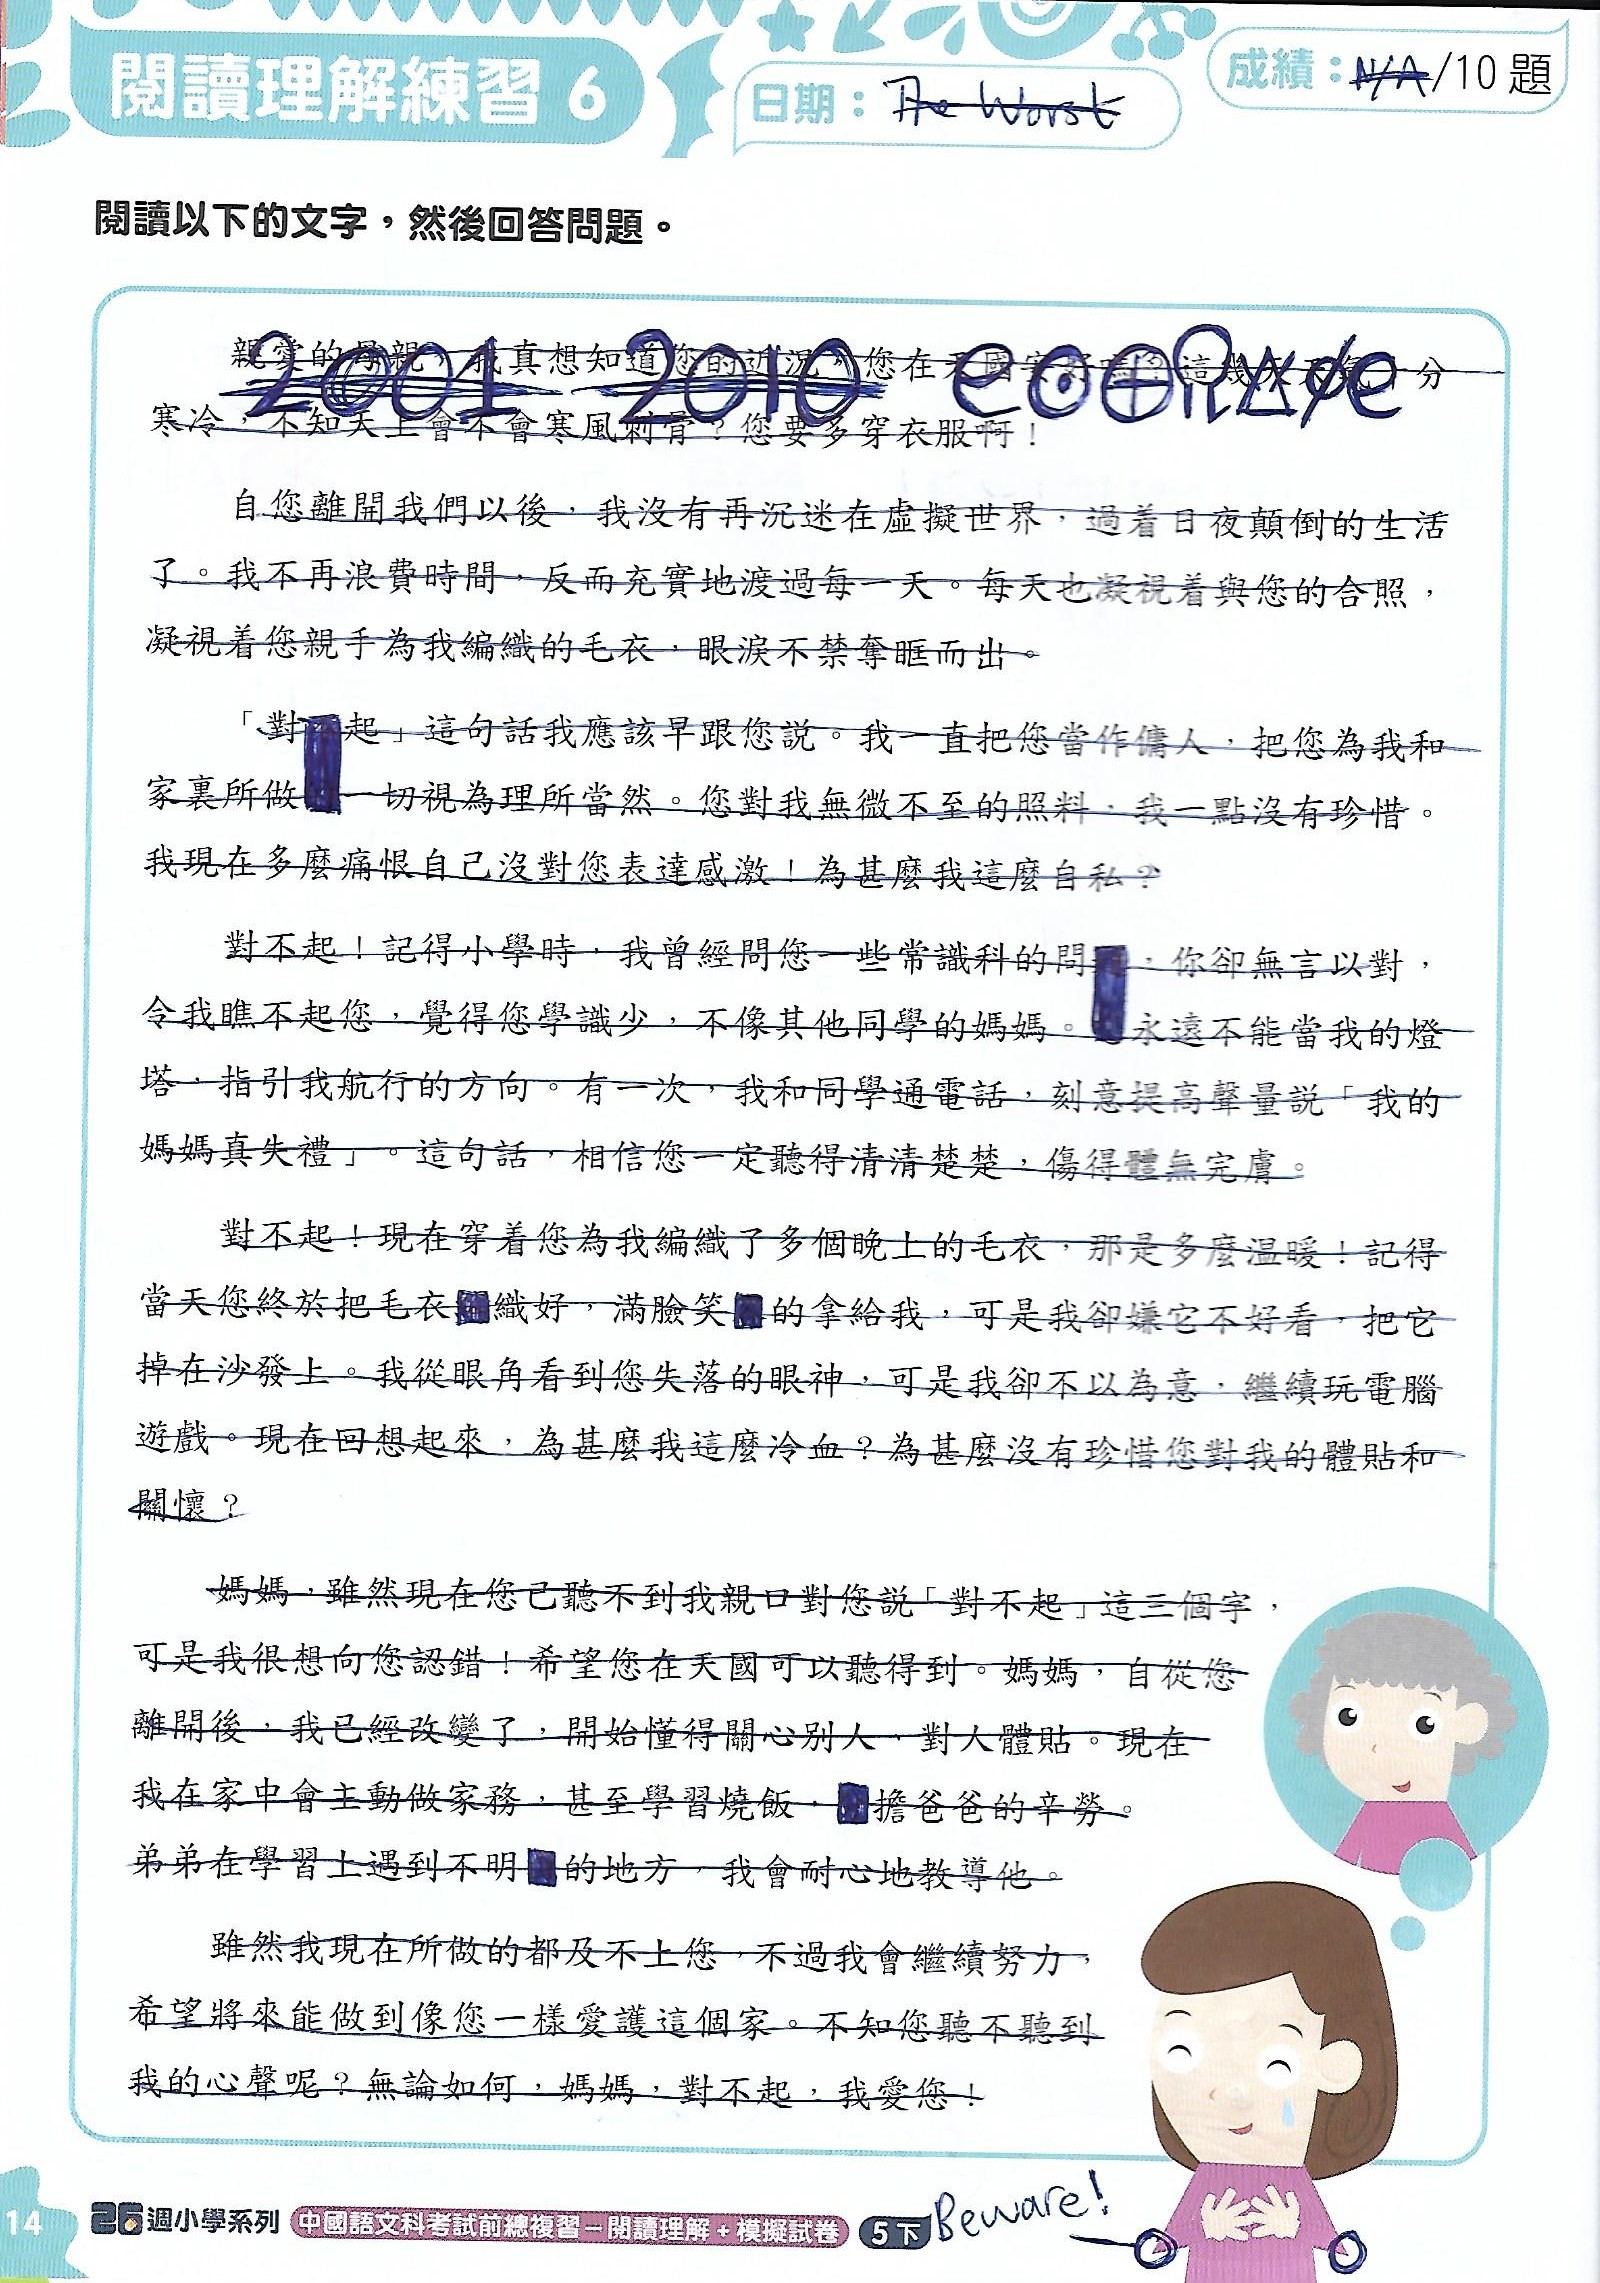 閱讀理解練習 6
日期：The Worst
成績：N/A/10 題
閱讀以下的文字，然後回答問題。
2001 2010
親愛的母親，我真想知道您的近況，您在天國安好嗎？這幾天天氣十分
寒冷，不知天上會不會寒風刺骨？您要多穿衣服啊！
自您離開我們以後，我沒有再沉迷在虛擬世界，過着日夜顛倒的生活
了。我不再浪費時間，反而充實地渡過每一天。每天也凝視着與您的合照，
凝視着您親手為我編織的毛衣，眼淚不禁奪眶而出。
「對不起」這句話我應該早跟您説。我一直把您當作傭人，把您為我和
家裏所做一切視為理所當然。您對我無微不至的照料，我一點沒有珍惜。
我現在多麼痛恨自己沒對您表達感激！為甚麼我這麼自私？
對不起！記得小學時，我曾經問您一些常識科的問，你卻無言以對，
令我瞧不起您，覺得您學識少，不像其他同學的媽媽。永遠不能當我的燈
塔，指引我航行的方向。有一次，我和同學通電話，刻意提高聲量説「我的
媽媽真失禮」。這句話，相信您一定聽得清清楚楚，傷得體無完膚。
對不起！現在穿着您為我編織了多個晚上的毛衣，那是多麼温暖！記得
當天您終於把毛衣織好，滿臉笑的拿給我，可是我卻嫌它不好看，把它
掉在沙發上。我從眼角看到您失落的眼神，可是我卻不以為意，繼續玩電腦
遊戲。現在回想起來，為甚麼我這麼冷血？為甚麼沒有珍惜您對我的體貼和
關懷？
媽媽，雖然現在您已聽不到我親口對您説「對不起」這三個字，
可是我很想向您認錯！希望您在天國可以聽得到。媽媽，自從您
離開後，我已經改變了，開始懂得關心別人，對人體貼。現在
我在家中會主動做家務，甚至學習燒飯，擔爸爸的辛勞。
弟弟在學習上遇到不明的地方，我會耐心地教導他。
雖然我現在所做的都及不上您，不過我會繼續努力，
希望將來能做到像您一樣愛護這個家。不知您聽不聽到
我的心聲呢？無論如何，媽媽，對不起，我愛您！
14
26週小學系列 中國語文科考試前總複習－閱讀理解＋模擬試卷 5下
Beware!